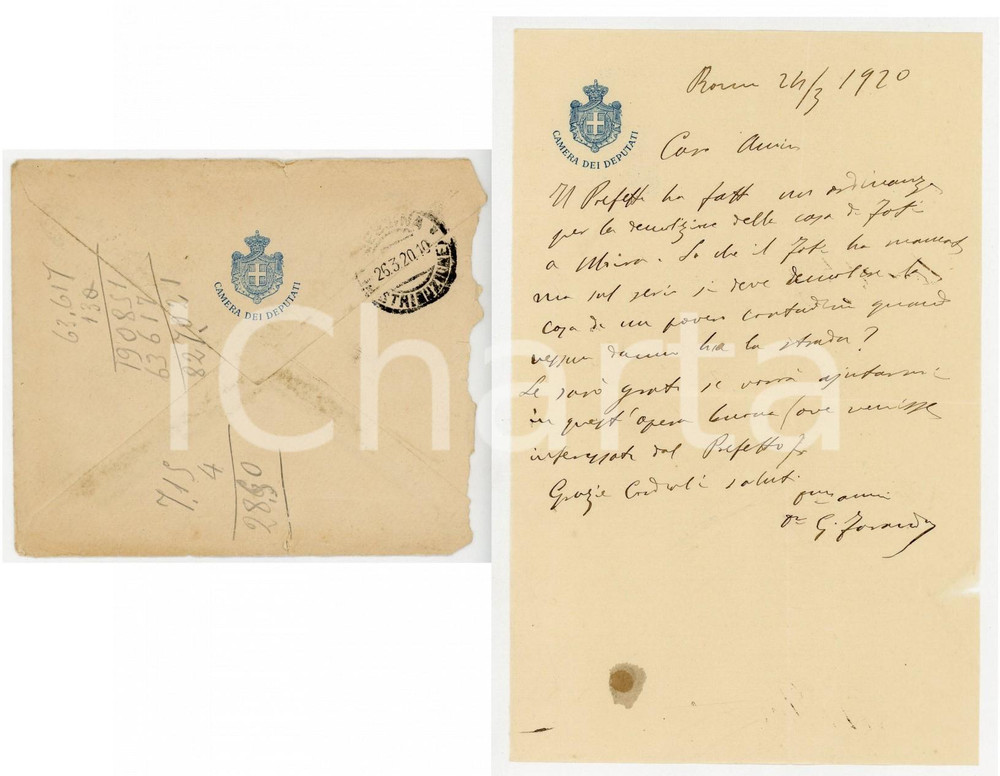 CAMERA DEI DEPUTATI
26.3.20.10
DISTRIBUZIONE
63.617
130
190851
63617
827021
715
4
2860
iCharta
Roma 24/3 1920
CAMERA DEI DEPUTATI
Caro Amico
Il Prefetto ha fatto una ordinanza
per la demolizione della casa di Foti
a . So che il Foti ha mancato
ma sul serio si deve demolire la
casa di un povero contadino quando
nessun danno ha la strada?
Le sarò grato se vorrà ajutarmi
in quest'opera buona (ove venisse
interessato dal Prefetto)
Grazie Cordiali saluti
G.